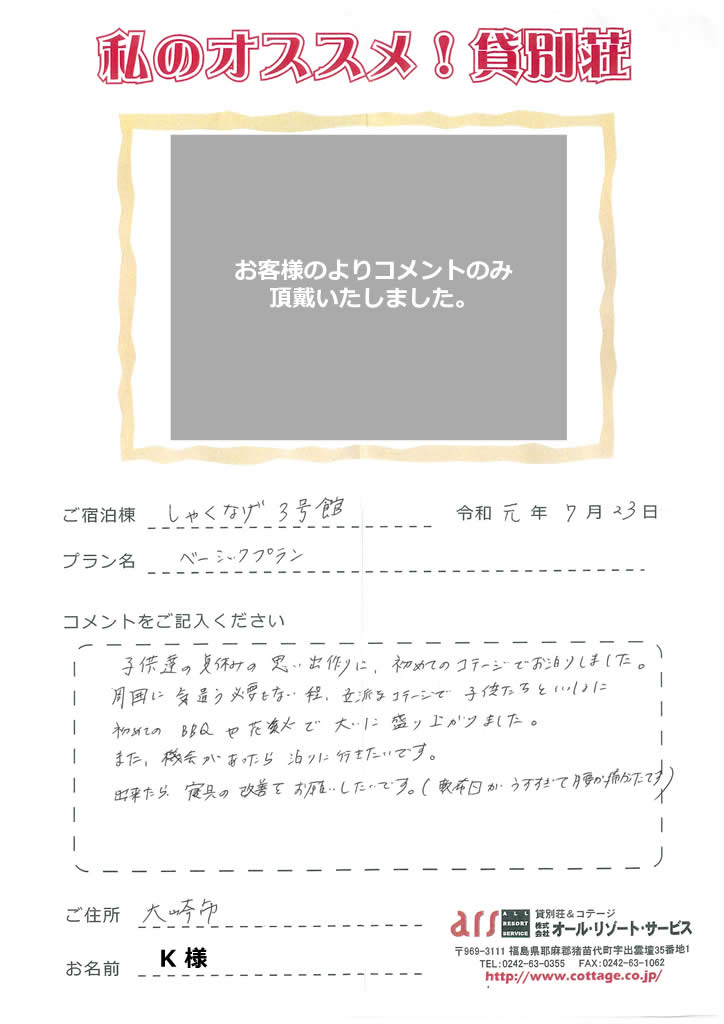 私のオススメ！貸別荘
お客様のよりコメントのみ
頂戴いたしました。
ご宿泊棟 しゃくなげ 3号館 令和 元 年 7 月 23 日
プラン名 ベーシックプラン
コメントをご記入ください
子供達の夏休みの思い出作りに、初めてのコテージでお泊りしました。
周囲に気遣う必要もない程、立派なコテージで子供たちといっしょに
初めてのBBQや花火で大いに盛り上がりました。
また、機会があったら泊りに行きたいです。
出来たら寝具の改善をお願いしたいです。(敷布団がうすすぎて腰が痛かったです)
ご住所 大崎市
お名前 K 様
ars ALL RESORT SERVICE 貸別荘＆コテージ
株式会社 オール・リゾート・サービス
〒969-3111 福島県耶麻郡猪苗代町字出雲壇35番地1
TEL:0242-63-0355 FAX:0242-63-1062
http://www.cottage.co.jp/